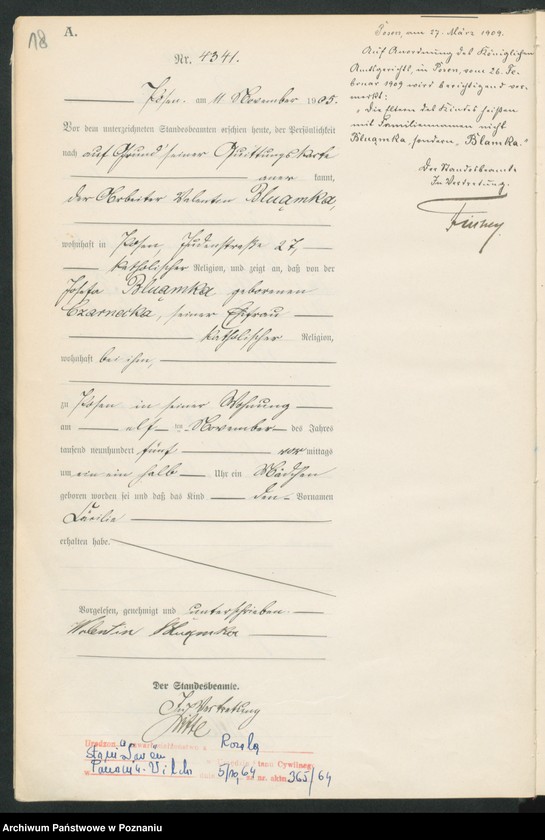 18
A.
Nr. 4341.
Posen, am 11 November 1905.
Vor dem unterzeichneten Standesbeamten erschien heute, der Persönlichkeit
nach auf Grund seiner Quittungskarte
aner kannt,
der Arbeiter Valentin Bluąmka,
wohnhaft in Posen, Judenstraße 27,
katholischer Religion, und zeigt an, daß von der
Josefa Bluąmka geborenen
Czarnecka, seiner Ehefrau
katholischer Religion,
wohnhaft bei ihm,
zu Posen in seiner Wohnung
am elf ten November des Jahres
tausend neunhundert fünf vor mittags
um ein ein halb Uhr ein Mädchen
geboren worden sei und daß das Kind den Vornamen
Cäcilie
erhalten habe.
Vorgelesen, genehmigt und unterschrieben
Walentin Bluąmka
Der Standesbeamte.
In Vertretung
Witte
Posen, am 27. März 1909.
Auf Anordnung des Königlichen
Amtsgerichts, in Posen, vom 26. Fe-
bruar 1909 wird berichtigend ver-
merkt:
"Die Eltern des Kindes heißen
mit Familiennamen nicht
Bluąmka, sondern "Blamka."
Der Standesbeamte
In Vertretung.
Urodzon
5/10.64
nr. aktu 365/64
Archiwum Państwowe w Poznaniu